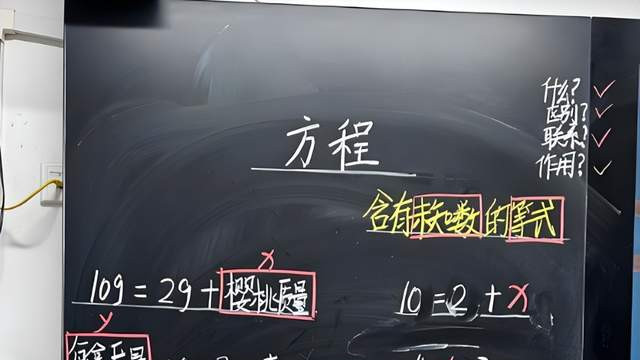 什么?
区别?
联系?
作用?
方程
含有未知数的等式
x
109=29+樱桃质量
10=2+x
y